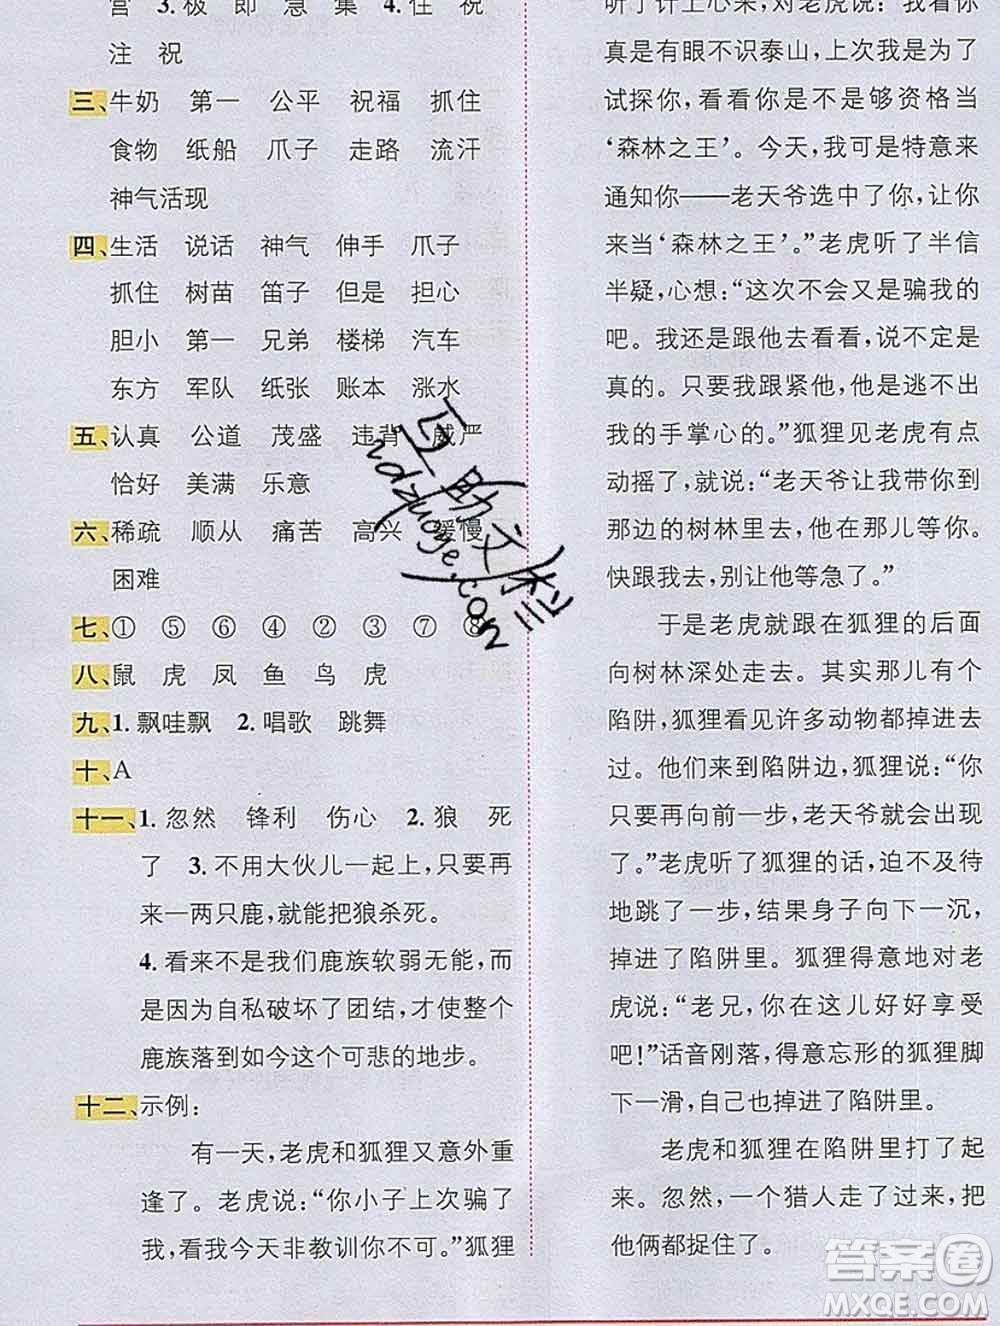 宫 3. 极 即 急 集 4. 住 祝
注 祝
三、牛奶 第一 公平 祝福 抓住
食物 纸船 爪子 走路 流汗
神气活现
四、生活 说话 神气 伸手 爪子
抓住 树苗 笛子 但是 担心
胆小 第一 兄弟 楼梯 汽车
东方 军队 纸张 账本 涨水
五、认真 公道 茂盛 违背 威严
恰好 美满 乐意
六、稀疏 顺从 痛苦 高兴 缓慢
困难
七、① ⑤ ⑥ ④ ② ③ ⑦ ⑧
八、鼠 虎 凤 鱼 鸟 虎
九、1. 飘哇飘 2. 唱歌 跳舞
十、A
十一、1. 忽然 锋利 伤心 2. 狼 死
了 3. 不用大伙儿一起上,只要再
来一两只鹿,就能把狼杀死。
4. 看来不是我们鹿族软弱无能,而
是因为自私破坏了团结,才使整个
鹿族落到如今这个可悲的地步。
十二、示例:
有一天,老虎和狐狸又意外重
逢了。老虎说:“你小子上次骗了
我,看我今天非教训你不可。”狐狸
听了计上心来,对老虎说:“我看你
真是有眼不识泰山,上次我是为了
试探你,看看你是不是够资格当
‘森林之王’。今天,我可是特意来
通知你——老天爷选中了你,让你
来当‘森林之王’。”老虎听了半信
半疑,心想:“这次不会又是骗我的
吧。我还是跟他去看看,说不定是
真的。只要我跟紧他,他是逃不出
我的手掌心的。”狐狸见老虎有点
动摇了,就说:“老天爷让我带你到
那边的树林里去,他在那儿等你。
快跟我去,别让他等急了。”
于是老虎就跟在狐狸的后面
向树林深处走去。其实那儿有个
陷阱,狐狸看见许多动物都掉进去
过。他们来到陷阱边,狐狸说:“你
只要再向前一步,老天爷就会出现
了。”老虎听了狐狸的话,迫不及待
地跳了一步,结果身子向下一沉,
掉进了陷阱里。狐狸得意地对老
虎说:“老兄,你在这儿好好享受
吧!”话音刚落,得意忘形的狐狸脚
下一滑,自己也掉进了陷阱里。
老虎和狐狸在陷阱里打了起
来。忽然,一个猎人走了过来,把
他俩都捉住了。
答案圈
MXQE.COM